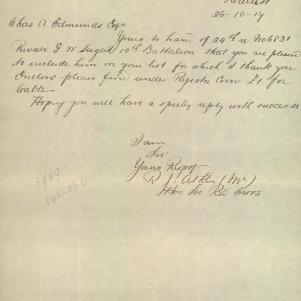 26-10-17
Chas A. Edmunds Esq
Yours to hand of 24th re No 6831
Private G W Sargent 10th Battalion that you are pleased
to include him on your list for which I thank you
Enclose please find under Register Cover £1 for
Cable
Hoping you will have a speedy reply with success
I am
Sir
Yours Respy
R J. (Mr)
Hon Sec Red Cross